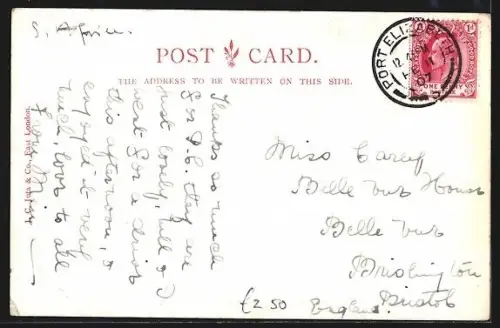 S. Africa.
POST CARD.
THE ADDRESS TO BE WRITTEN ON THIS SIDE.
PORT ELIZABETH
12
07
ONE PENNY
Thanks so much
for P.C. they are
just lovely, Mill & I
went for a drive
this afternoon, &
enjoyed it very
much, love to all
from M.
& Co., East London.
Miss Carey
Belle Vue House
Belle Vue
Brislington
Bristol
England.
£2 50